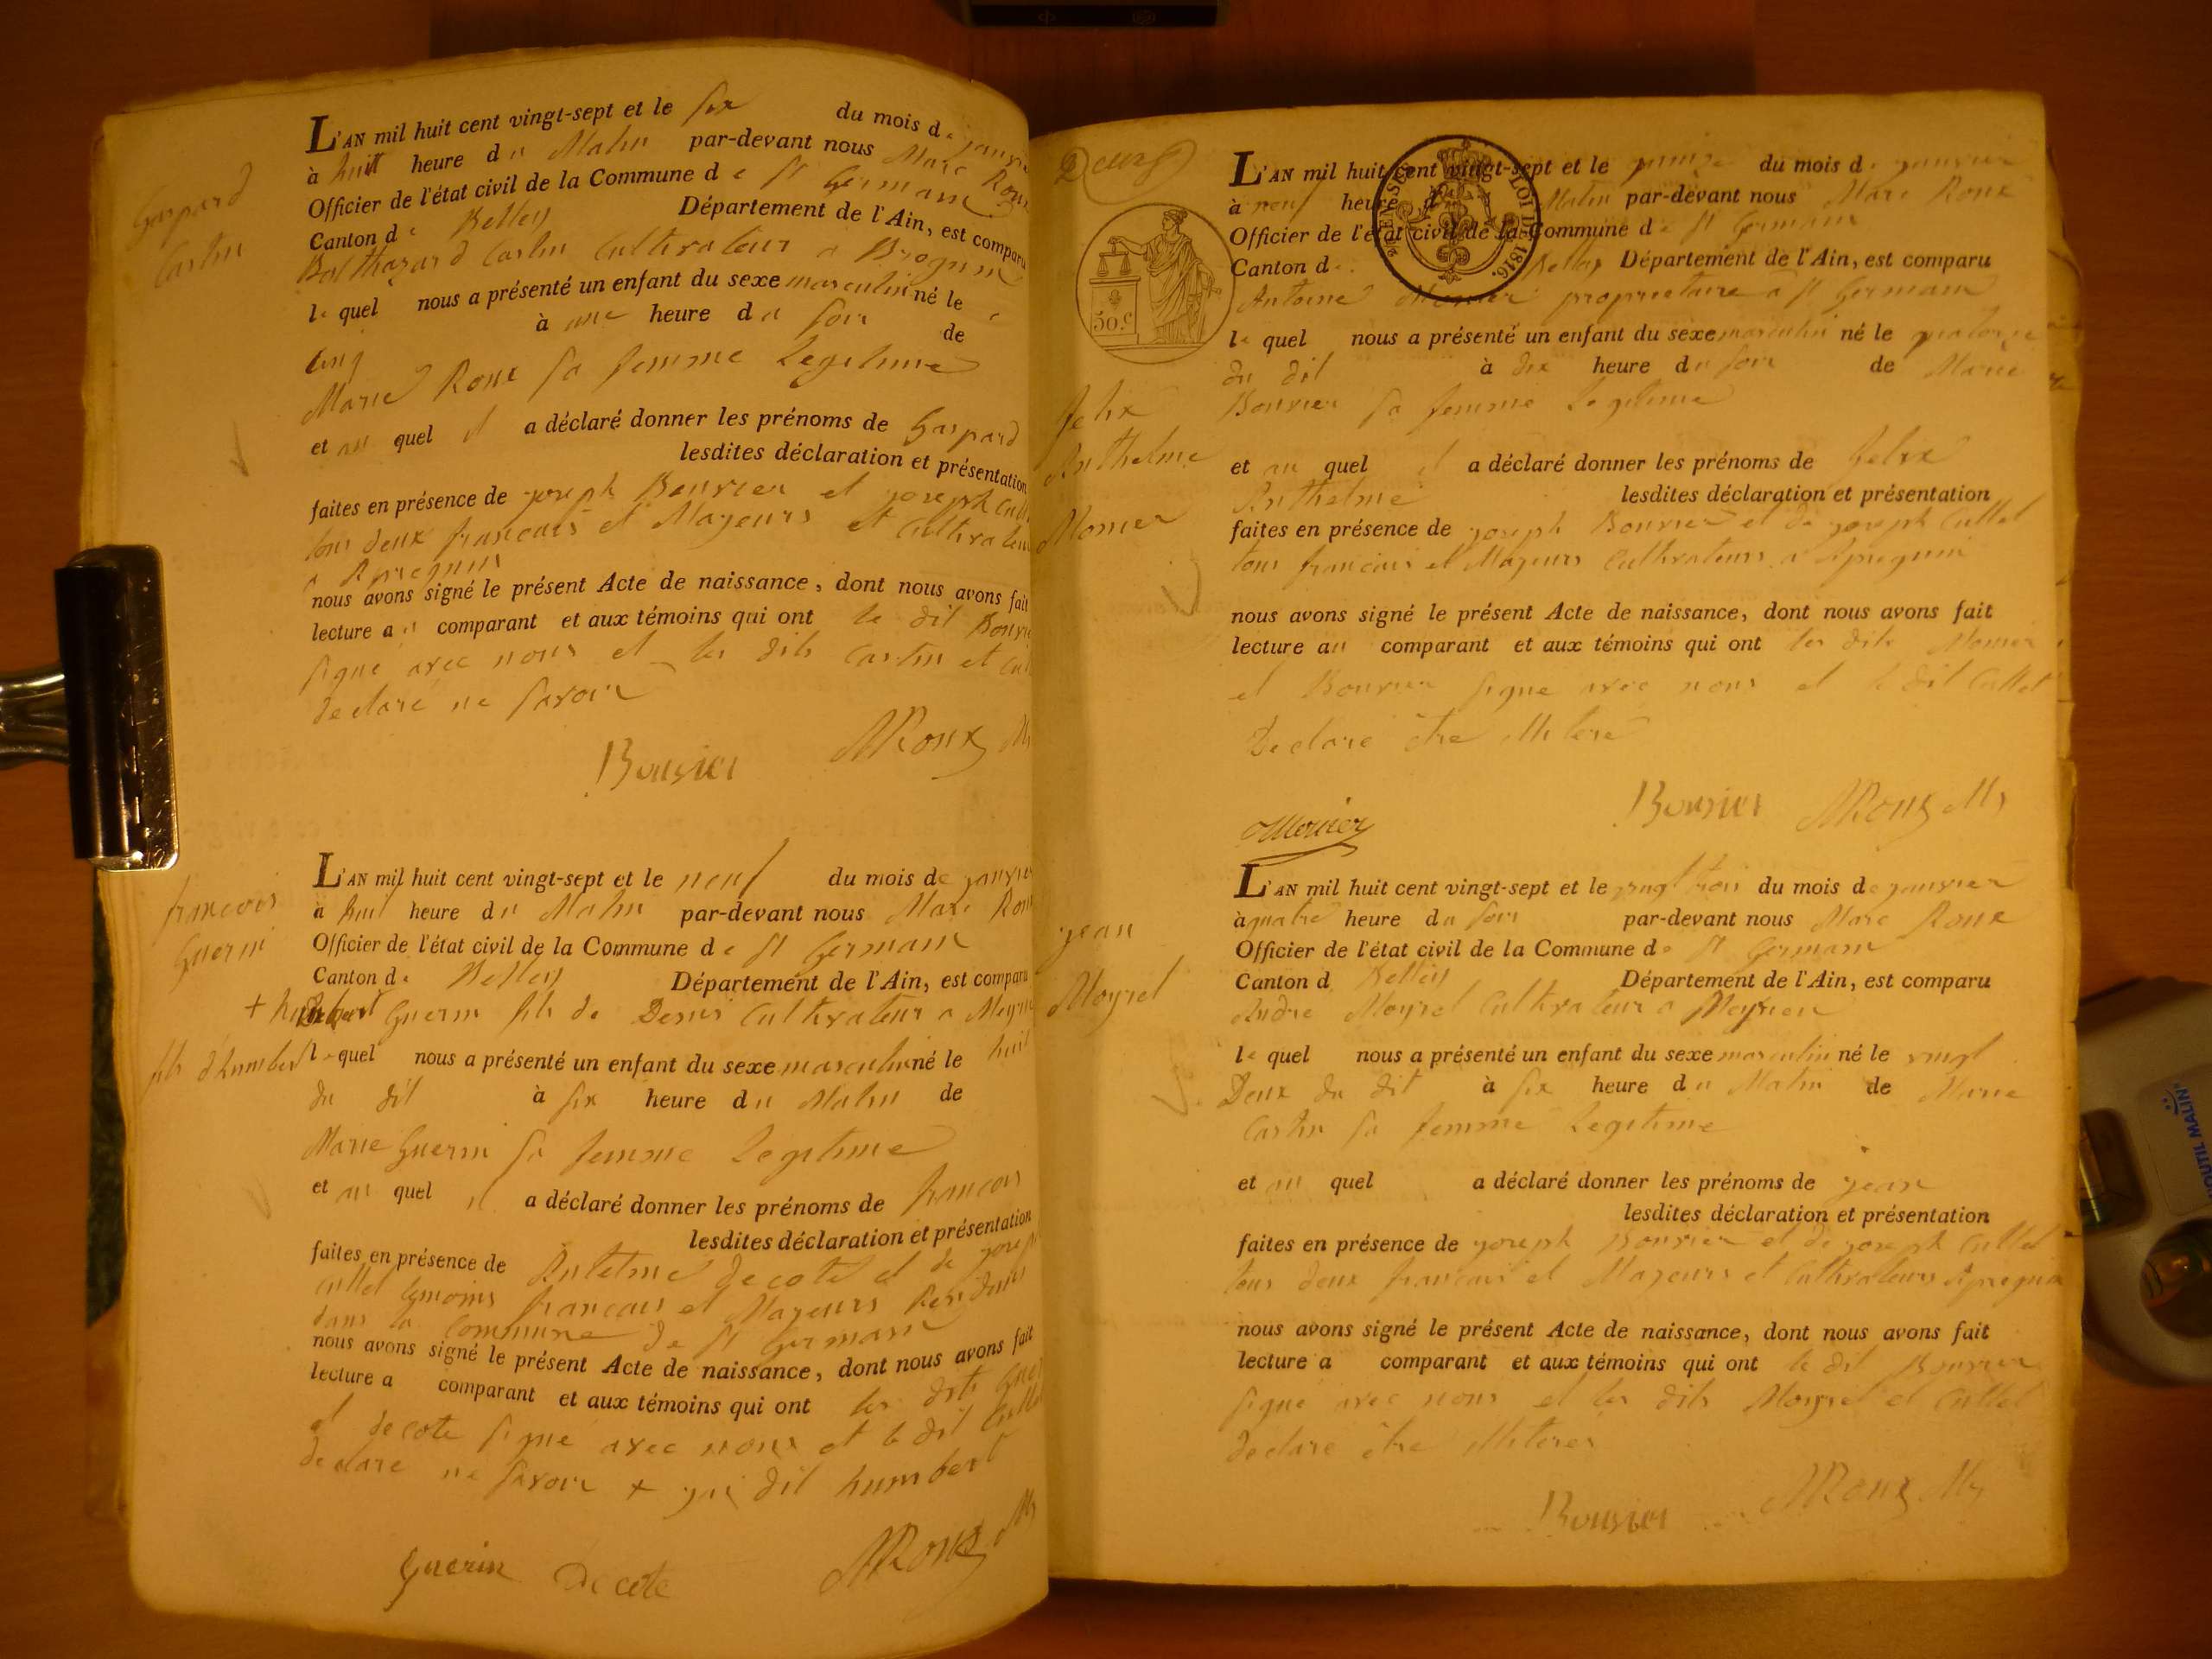 Gaspard
Castin
L'AN mil huit cent vingt-sept et le six du mois de janvier
à huit heure du Matin par-devant nous Marc Roux
Officier de l'état civil de la Commune de St Germain
Canton de Belley Département de l'Ain, est comparu
Balthazard Castin Cultivateur a
le quel nous a présenté un enfant du sexe masculin né le
cinq à une heure du soir de
Marie Roux sa femme Legitime
et au quel il a déclaré donner les prénoms de Gaspard
lesdites déclaration et présentation
faites en présence de joseph Bouvier et joseph
tous deux francais et Majeurs et Cultivateurs
a
nous avons signé le présent Acte de naissance, dont nous avons fait
lecture au comparant et aux témoins qui ont le dit Bouvier
signé avec nous et les dits Castin et
declaré ne savoir
Bouvier MRoux
francois
Guerin
fils d'humbert
L'AN mil huit cent vingt-sept et le neuf du mois de janvier
à huit heure du Matin par-devant nous Marc Roux
Officier de l'état civil de la Commune de St Germain
Canton de Belley Département de l'Ain, est comparu
+ humbert Guerin fils de Denis Cultivateur a
le quel nous a présenté un enfant du sexe masculin né le huit
du dit à six heure du Matin de
Marie Guerin sa femme Legitime
et au quel il a déclaré donner les prénoms de francois
lesdites déclaration et présentation
faites en présence de Antelme decote et de joseph
Cullet temoins francais et Majeurs Residants
dans la Commune de St Germain
nous avons signé le présent Acte de naissance, dont nous avons fait
lecture a comparant et aux témoins qui ont les dits
et decote signé avec nous et le dit Cullet
declare ne savoir + dit humbert
Guerin Decote MRoux
50.c
LOI DE 1816.
felix
Anthelme
Monier
L'AN mil huit cent vingt-sept et le quinze du mois de janvier
à neuf heure du Matin par-devant nous Marc Roux
Officier de l'état civil de la Commune de St Germain
Canton de Belley Département de l'Ain, est comparu
Antoine Monier proprietaire a St Germain
le quel nous a présenté un enfant du sexe masculin né le quatorze
du dit à dix heure du soir de Marie
Bouvier sa femme Legitime
et au quel il a déclaré donner les prénoms de felix
Anthelme lesdites déclaration et présentation
faites en présence de joseph Bouvier et de joseph Cullet
tous francais et Majeurs Cultivateurs a Apregnin
nous avons signé le présent Acte de naissance, dont nous avons fait
lecture au comparant et aux témoins qui ont les dits Monier
et Bouvier signe avec nous et le dit Cullet
Declare être illitere
Bouvier MRoux
Monier
jean
Moyret
L'AN mil huit cent vingt-sept et le vingt trois du mois de janvier
à quatre heure du soir par-devant nous Marc Roux
Officier de l'état civil de la Commune de St Germain
Canton d Belley Département de l'Ain, est comparu
Andre Moyret Cultivateur a Meyrieu
le quel nous a présenté un enfant du sexe masculin né le vingt
Deux du dit à six heure du Matin de Marie
Castin sa femme Legitime
et au quel a déclaré donner les prénoms de jean
lesdites déclaration et présentation
faites en présence de joseph Bouvier et de joseph Cullet
tous deux francais et Majeurs et Cultivateurs
nous avons signé le présent Acte de naissance, dont nous avons fait
lecture a comparant et aux témoins qui ont le dit Bouvier
signé avec nous et les dits Moyret et Cullet
declare être illiteres
Bouvier MRoux
OUTIL MALIN